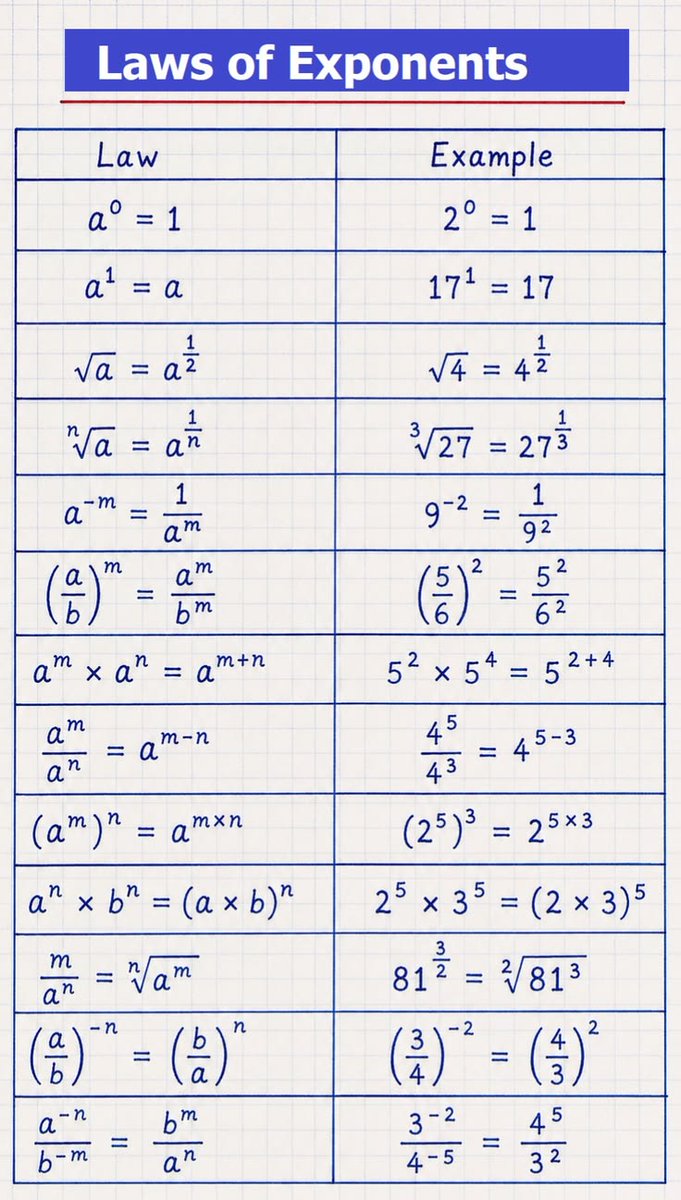 Laws of Exponents
Law Example
a⁰ = 1 2⁰ = 1
a¹ = a 17¹ = 17
√a = a^(1/2) √4 = 4^(1/2)
ⁿ√a = a^(1/n) ³√27 = 27^(1/3)
a⁻ᵐ = 1/aᵐ 9⁻² = 1/9²
(a/b)ᵐ = aᵐ/bᵐ (5/6)² = 5²/6²
aᵐ × aⁿ = aᵐ⁺ⁿ 5² × 5⁴ = 5²⁺⁴
aᵐ/aⁿ = aᵐ⁻ⁿ 4⁵/4³ = 4⁵⁻³
(aᵐ)ⁿ = a^(m×n) (2⁵)³ = 2^(5×3)
aⁿ × bⁿ = (a × b)ⁿ 2⁵ × 3⁵ = (2 × 3)⁵
m/aⁿ = ⁿ√aᵐ 81^(3/2) = ²√81³
(a/b)⁻ⁿ = (b/a)ⁿ (3/4)⁻² = (4/3)²
a⁻ⁿ/b⁻ᵐ = bᵐ/aⁿ 3⁻²/4⁻⁵ = 4⁵/3²